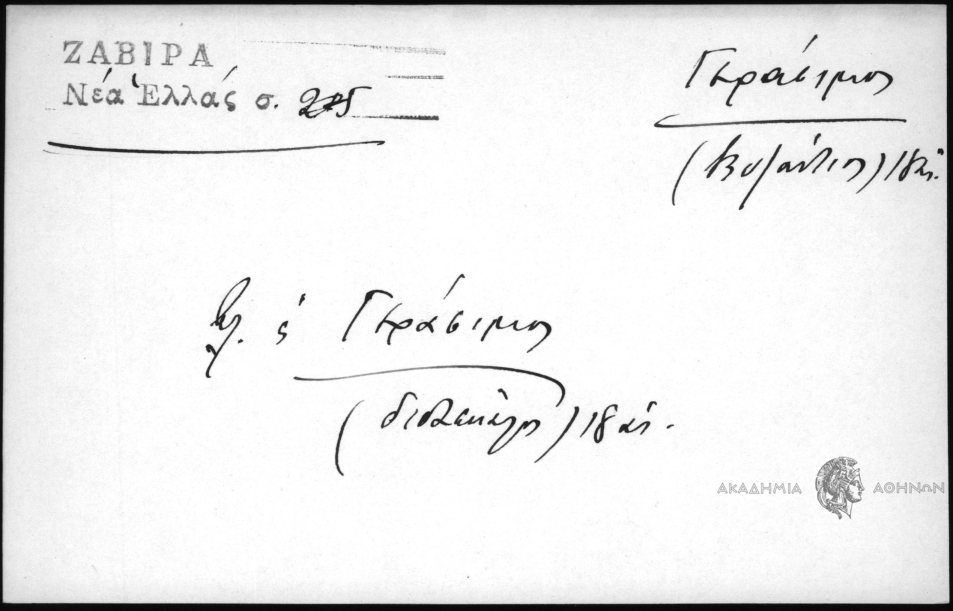 ΖΑΒΙΡΑ
Νέα Ἑλλάς σ. 225
Γεράσιμος
(Βυζάντιος) 18 αἰ.
Βλ. ἐ Γεράσιμος
(διδάσκαλος) 18 αἰ.
ΑΚΑΔΗΜΙΑ ΑΘΗΝΩΝ